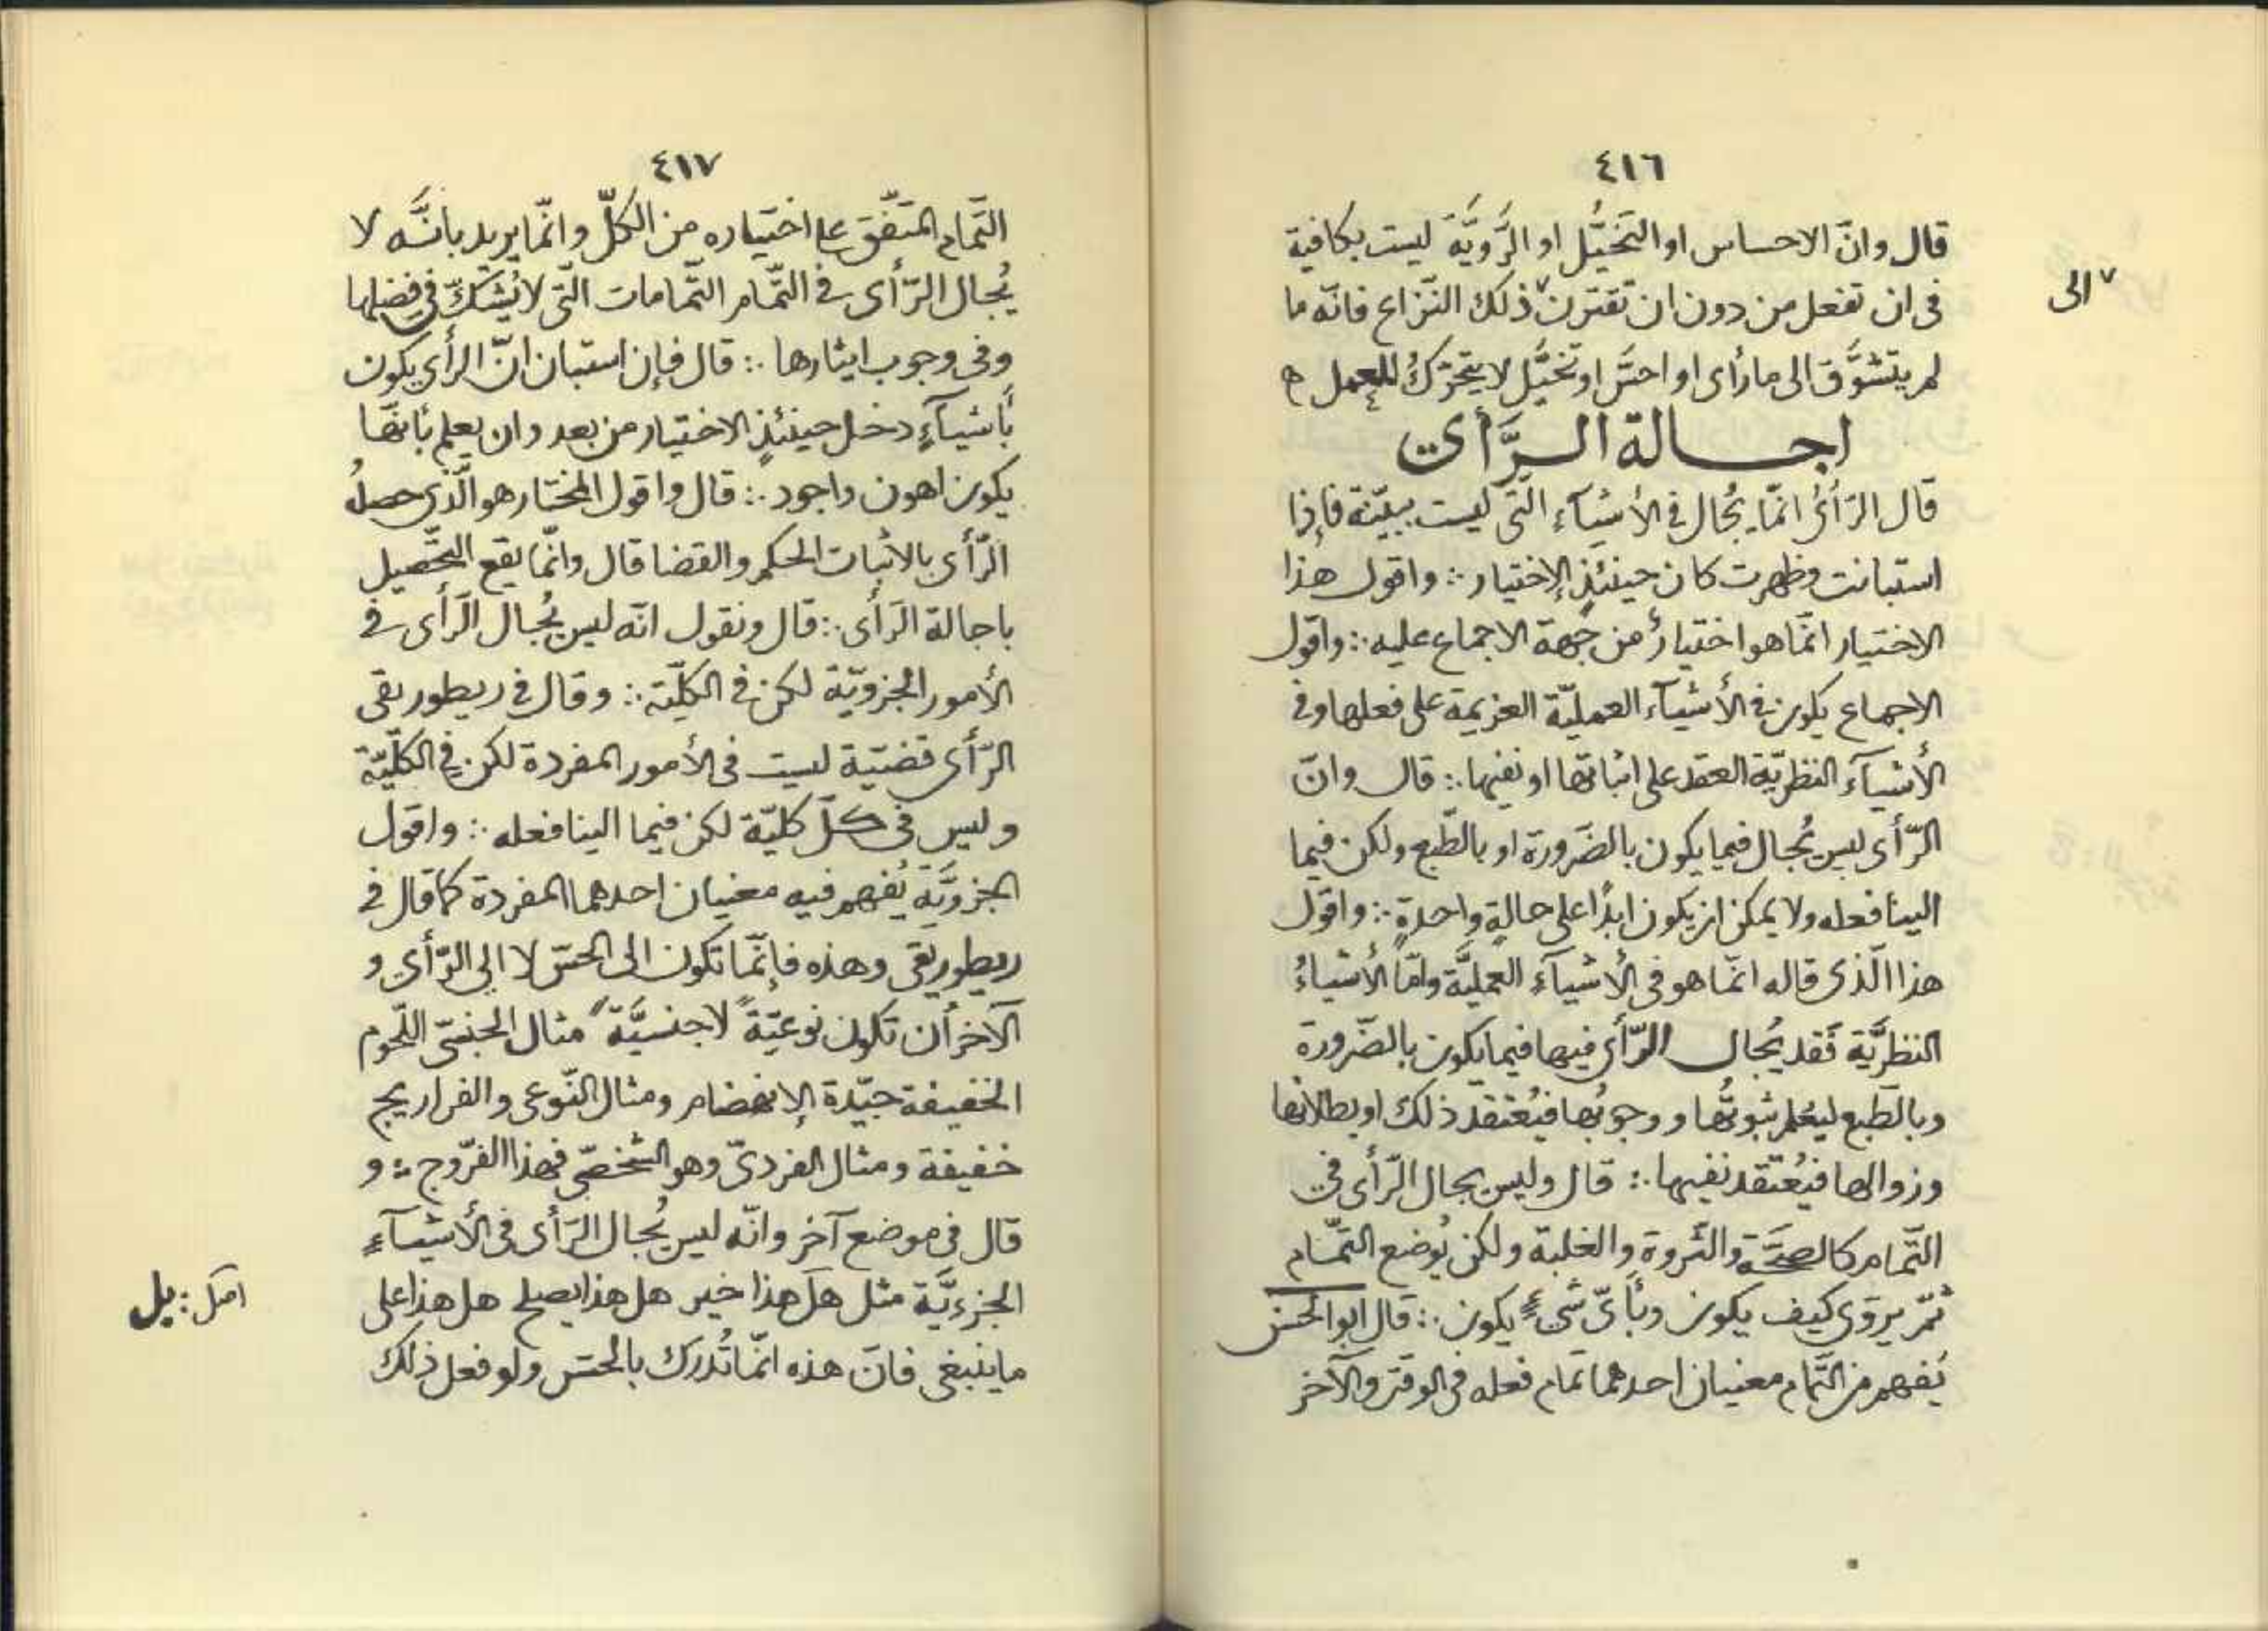 ٤١٦
قال وانّ الاحساس او التخيُّل او الرَّويَّة ليست بكافية
فى ان تفعل من دون ان تقترن٧ ذلك النّزاع فانّه ما
٧ الى
لم يتشوَّق الى ما رأى او احسَّ او تخيَّل لا يتحرّكُ للعمل ه
اجالة الرَّأى
قال الرّأىُ انّما يُجال فى الأشيآء الّتى ليست ببيّنة فإذا
استبانت وظهرت كان حينئذٍ الإختيار ∴ واقول هذا
الاختيار انّما هو اختيارٌ من جهة الاجماع عليه ∴ واقول
الاجماع يكون فى الأشيآء العمليّة العزيمة على فعلها وفى
الأشيآء النظريّة العقد على اثباتها او نفيها ∴ قال وانّ
الرّأى ليس يُجال فيما يكون بالضّرورة او بالطّبع ولكن فيما
الينا فعله ولا يمكن ان يكون ابدًا على حالةٍ واحدةٍ ∴ واقول
هذا الّذى قاله انّما هو فى الأشيآءِ العمليَّة وامّا الأشياءُ
النظريَّة فَقد يُجال الرّأى فيها فيما يكون بالضّرورة
وبالطّبع ليُعلم ثبوتُها ووجوبُها فيُعْتقد ذلك او بطلانها
وزوالها فيُعْتقد نفيها ∴ قال وليس يجال الرّأى فى
التّمام كالصحَّة والثّروة والغلبة ولكن يُوضع التّمام
ثمّ يروّى كيف يكون وبأىّ شىءٍ يكون ∴ قال ابو الحسن
يُفهم من التّمام معنيان احدهما تمام فعله فى الوقت والآخر
٤١٧
التّمام المتّفق على اختياره من الكلّ وانّما يريد بانَّه لا
يُجال الرّأى فى التّمام التّمامات الّتى لا يُشكّ فى فضلها
وفى وجوب ايثارها ∴ قال فإن استبان انّ الرأى يكون
بأشيآءٍ دخل حينئذٍ الاختيار من بعد وان يعلم بأيّها
يكون اهون واجود ∴ قال واقول المختار هو الّذى حصلهُ
الرّأى بالاثبات الحكم والقضا قال وانّما يقع التّحصيل
باجالة الرّأى ∴ قال ونقول انّه ليس يُجال الرّأى فى
الأمور الجزويّة لكن فى الكلّيّة ∴ وقال فى ريطوريقى
الرّأى قضيّة ليست فى الأمور المفردة لكن فى الكلّيّة
وليس فى كلّ كليّة لكن فيما الينا فعله ∴ واقول
الجزويَّة يُفهم فيه معنيان احدهما المفردة كما قال فى
ريطوريقى وهذه فإنّما تكون الى الحسّ لا الى الرّأى و
الآخر أن تكون نوعيّةً لا جنسيَّةً مثال الجنسّى اللّحوم
الخفيفة جيّدة الإنهضام ومثال النّوعى والفراريج
خفيفة ومثال الفردىّ وهو الشّخصّى فهذا الفرّوج ∴ و
قال فى موضع آخر وانّه ليس يُجال الرّأى فى الأشيآءِ
الجزءيَّة مثل هل هذا خير هل هذا يصلح هل هذا على
ما ينبغى فانّ هذه انّما تُدرك بالحسّ ولو فعل ذلك